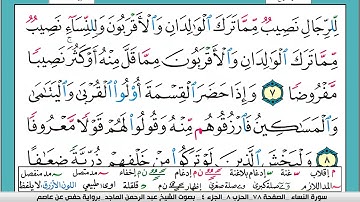 لِّلرِّجَالِ نَصِيبٌ مِّمَّا تَرَكَ الْوَالِدَانِ وَالْأَقْرَبُونَ وَلِلنِّسَاءِ نَصِيبٌ
مِّمَّا تَرَكَ الْوَالِدَانِ وَالْأَقْرَبُونَ مِمَّا قَلَّ مِنْهُ أَوْ كَثُرَ نَصِيبًا
مَّفْرُوضًا ٧ وَإِذَا حَضَرَ الْقِسْمَةَ أُوْلُوا الْقُرْبَىٰ وَالْيَتَامَىٰ
وَالْمَسَاكِينُ فَارْزُقُوهُم مِّنْهُ وَقُولُوا لَهُمْ قَوْلًا مَّعْرُوفًا ٨
وَلْيَخْشَ الَّذِينَ لَوْ تَرَكُوا مِنْ خَلْفِهِمْ ذُرِّيَّةً ضِعَافًا
م إقلاب غنة إدغام بلاغنة
المد اللازم قلقلة اللون الأزرق لا يلفظ
سورة النساء_الصفحة ٧٨_الحزب ٨_الجزء ٤_ بصوت الشيخ عبد الرحمن الماجد_برواية حفص عن عاصم